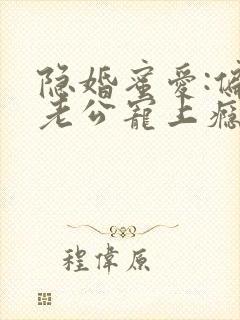 隐婚蜜爱:偏
老公宠上瘾
程偉原